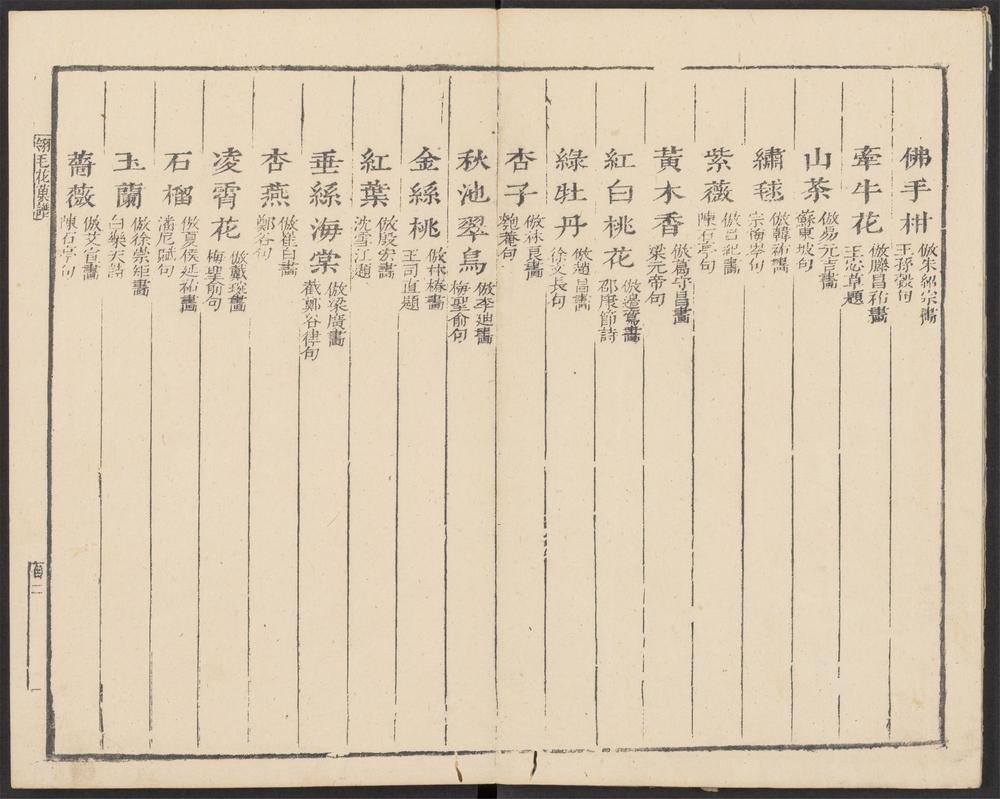 佛手柑 倣朱紹宗畫 王孫穀句
牽牛花 倣滕昌祐畫 王忘草題
山茶 倣易元吉畫 蘇東坡句
繡毬 倣韓祐畫 宗海岑句
紫薇 倣呂紀畫 陳石亭句
黃木香 倣葛守昌畫 梁元帝句
紅白桃花 倣邊鸞畫 邵康節詩
綠牡丹 倣趙昌畫 徐文長句
杏子 倣林良畫 匏菴句
秋池翠鳥 倣李迪畫 梅聖俞句
金絲桃 倣林椿畫 王司直題
紅葉 倣殷宏畫 沈雪江題
垂絲海棠 倣梁廣畫 截鄭谷律句
杏燕 倣崔白畫 鄭谷句
凌霄花 倣戴琬畫 梅聖俞句
石榴 倣夏侯延祐畫 潘尼賦句
玉蘭 倣徐崇矩畫 白樂天詩
薔薇 倣艾宣畫 陳石亭句
翎毛花果譜
目 二